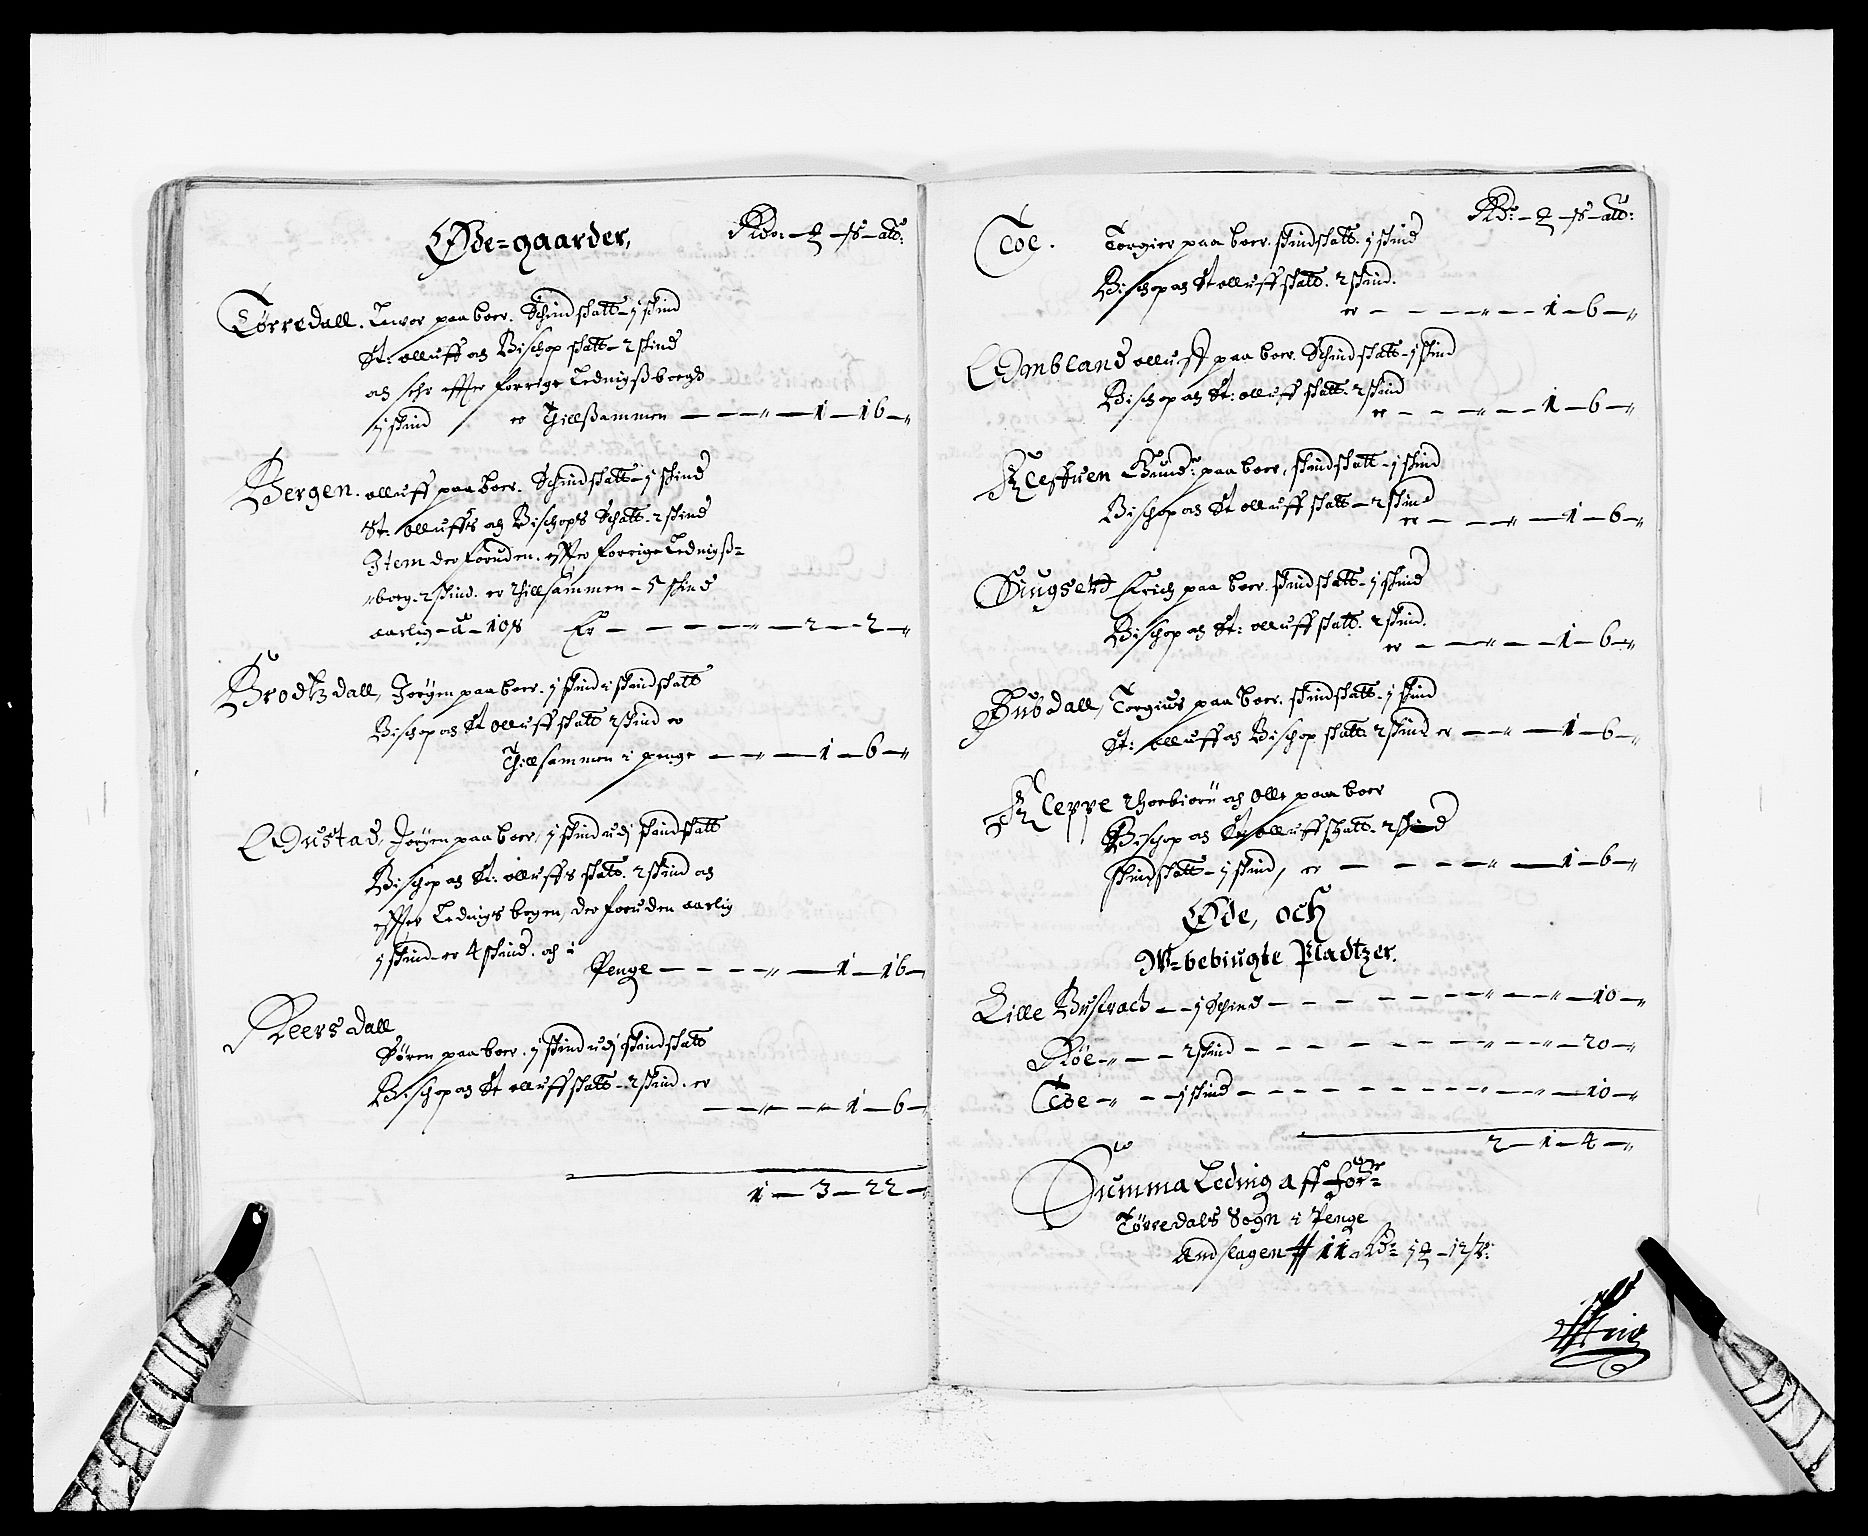 Øde=gaarder,
Rdr. – ℳ – ß – alb:
Tørredall. Lewor paa boer. Schindskatt – j skind
St: olluff och Bischop skatt – 2 skind
och ehr effter forrige Ledings boegh
j skind er Thillsammen – – – „ – 1 – 16 – „
Bergen. olluff paa boer. Schindskatt – j skind
St: olluffs och Bischops Schatt – 2 skind
Item der foruden. effter forrige Lednigß=
„boeg. 2 skind. er thillsammen – 5 skind
aarlig – a – 10 ß Er – – – – „ – 2 – 2 – „
Brodtzdall, Jörgen paa boer. j skind i skindskatt
Bischop och St olluff skatt 2 skind er
Thillsammen i penge – – „ – 1 – 6 – „
Odustad, Jörgen paa boer, j skind udj skindskatt
Bischop och St: olluffs skatt. 2 skind och
effter Ledings bogen, der foruden aarlig
j skind – er 4 skind. och i
Penge – – – – „ – 1 – 16 –
Reersdall
Søren paa boer. j skind udj skindskatt
Bischop och St olluff skatt – 2 skind. er
– – „ – „ – 1 – 6 –
1 – 3 – 22 – „
Rdr: – ℳ – ß – alb:
Toe. Torgier paa boer. skindskatt. j skind
Bischop och St olluff skatt. 2 skind.
er – – – – „ – – 1 – 6 – „
Ombland olluff paa boer. Schindskatt – j skind
Bischop och St: olluff skatt. 2 skind
er – – – „ – – 1 – 6 – „
Kleffuen Gund: paa boer, skindskatt – j skind
Bischop och St olluff skatt – 2 skind
er – – – „ – 1 – 6 – „
Siugsett Erich paa boer. skindskatt – j skind
Bischop och St: olluff skatt. 2 skind.
er – – – „ – – 1 – 6 – „
Hubdall, Torgius paa boer. skindskatt – j skind
St: olluff och Bischop skatt. 2 skind er – – „ – 1 – 6 – „
Kleppe Thorbiörn och Olle paa boer
Bischop och St olluff skatt – 2 skind
skindskatt – j skind, er – – – – „ – 1 – 6 – „
Øde, och
W=bebiugte Pladtzer.
Lille Bustrach – – j Schind – – – – – – „ – – „ – 10 – „
Røe – „ – – – 2 skind – – – – – – – „ – – „ – 20 – „
Toe – „ – – j skind – – – – – – – – „ – – „ – 10 – „
2 – 1 – 4 – „
Summa Leding aff for=
Tørredals Sogn i Penge
Andslagen # 11 Rdr 1 ℳ – 12 ß: